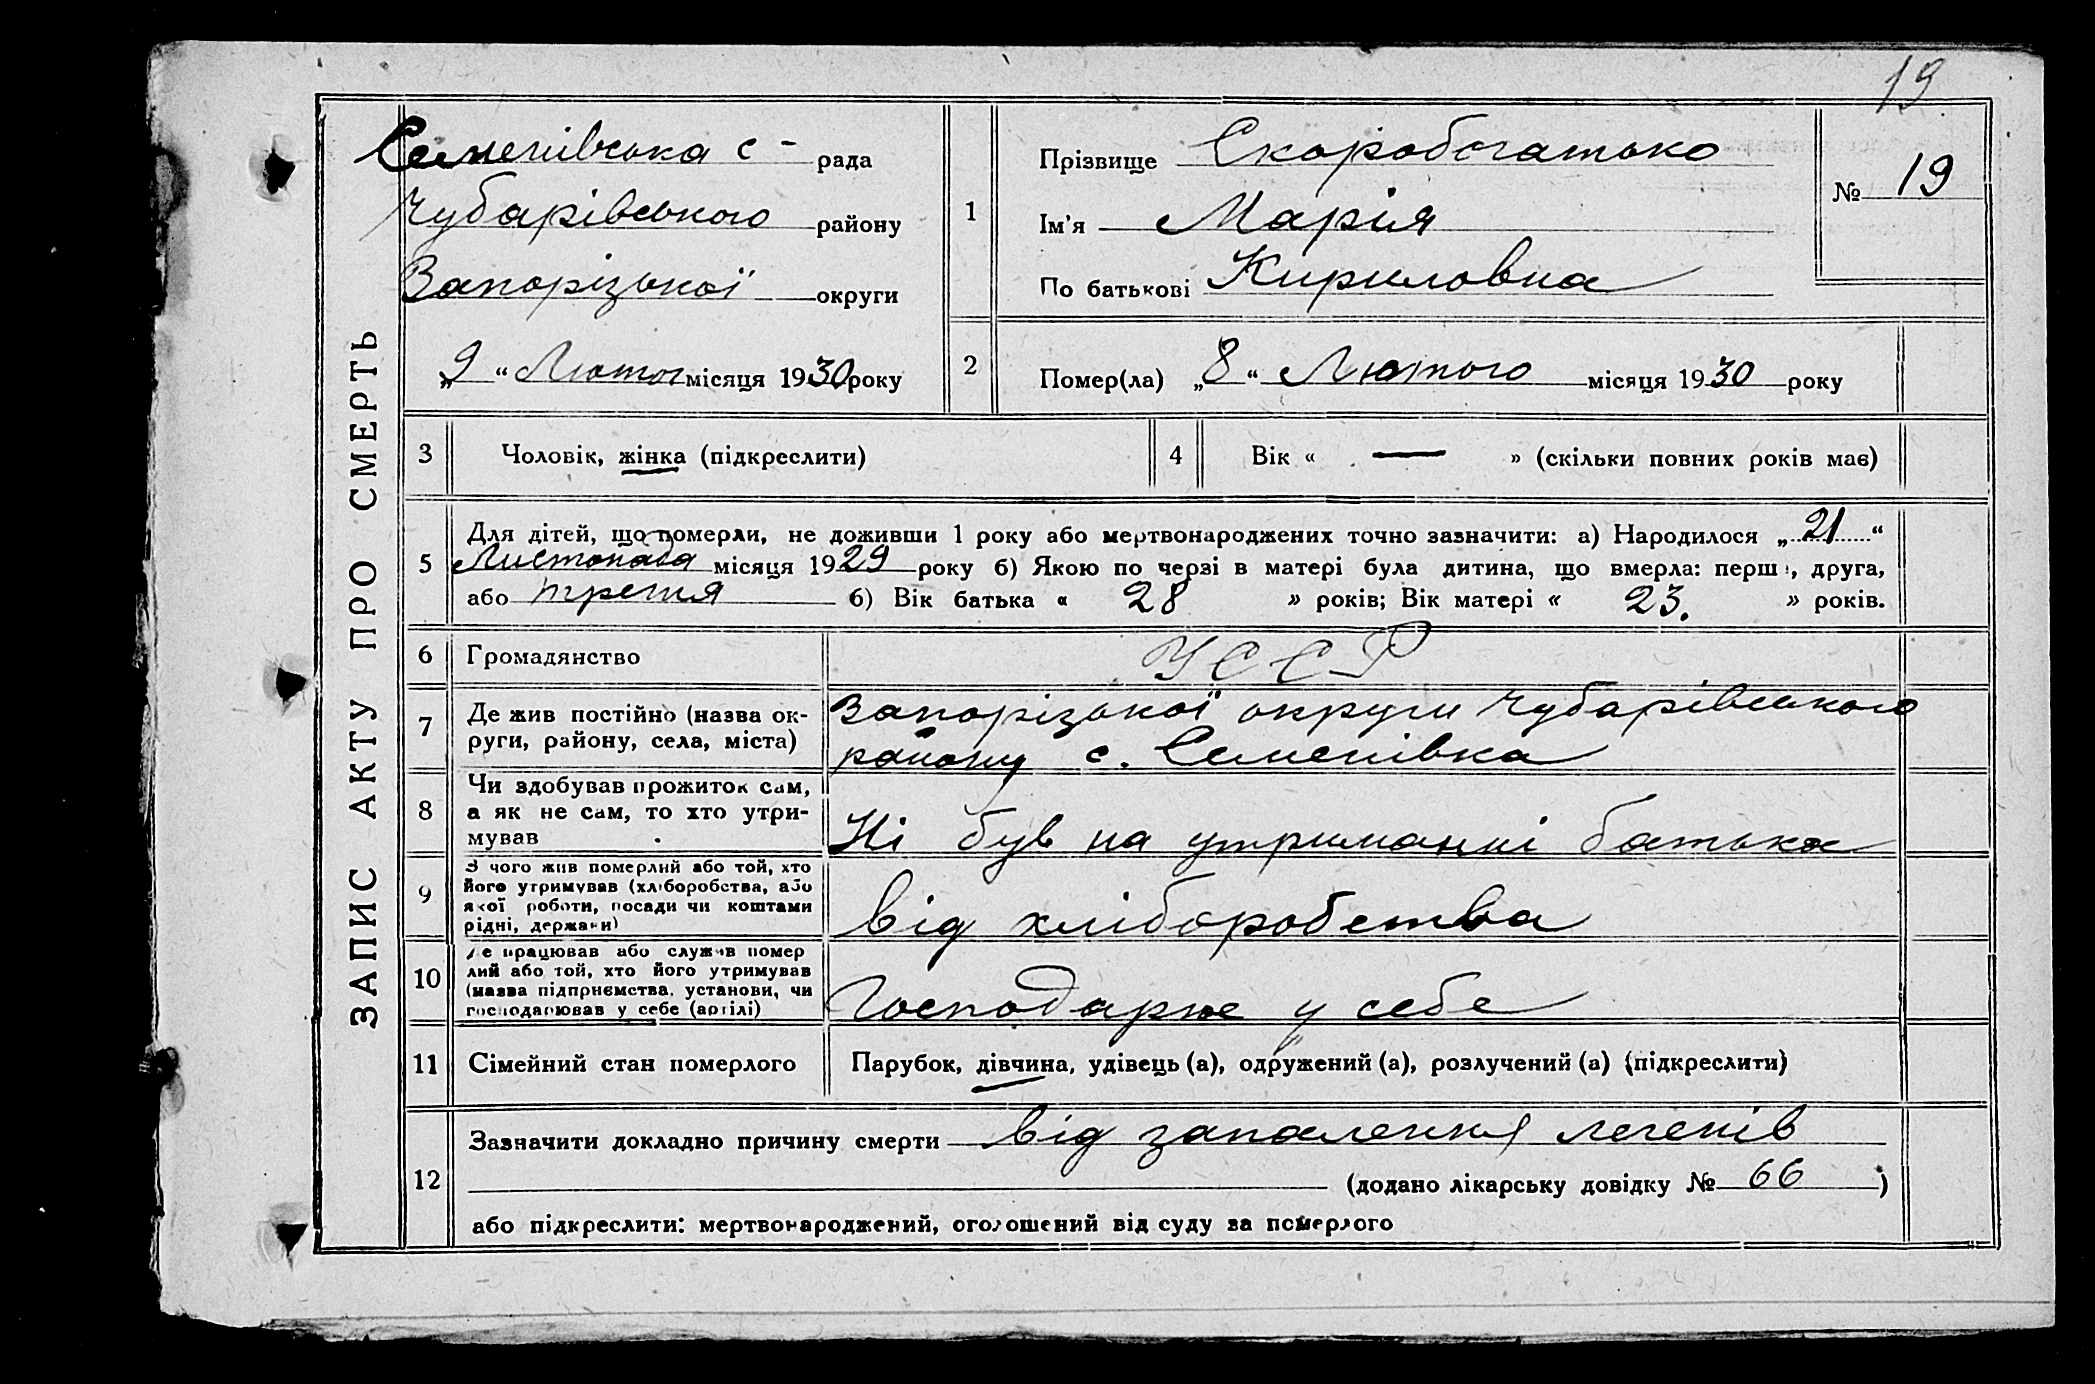 19
ЗАПИС АКТУ ПРО СМЕРТЬ
Семенівська с - рада
Чубарівського району
Запорізької округи
„9“ Лютог місяця 1930 року
1
Прізвище Скоробогатько
Ім'я Марія
По батькові Кириловна
№ 19
2
Помер(ла) „8“ Лютого місяця 1930 року
3 Чоловік, жінка (підкреслити)
4 Вік « — » (скільки повних років має)
5
Для дітей, що померли, не доживши 1 року або мертвонароджених точно зазначити: а) Народилося „21“
Листопада місяця 1929 року б) Якою по черзі в матері була дитина, що вмерла: перша, друга,
або третя б) Вік батька « 28 » років; Вік матері « 23. » років.
6 Громадянство УССР
7
Де жив постійно (назва ок-
руги, району, села, міста)
Запорізької округи Чубарівського
району с. Семенівка
8
Чи здобував прожиток сам,
а як не сам, то хто утри-
мував
Ні був на утриманні батька
9
З чого жив померлий або той, хто
його утримував (хліборобства, або
якої роботи, посади чи коштами
рідні, держави)
від хліборобства
10
Де працював або служив помер
лий або той, хто його утримував
(назва підприємства, установи, чи
господарював у себе (артілі)
Господарює у себе
11 Сімейний стан померлого Парубок, дівчина, удівець (а), одружений (а), розлучений (а) (підкреслити)
12
Зазначити докладно причину смерти від запалення легенів
(додано лікарську довідку № 66 )
або підкреслити: мертвонароджений, оголошений від суду за померлого